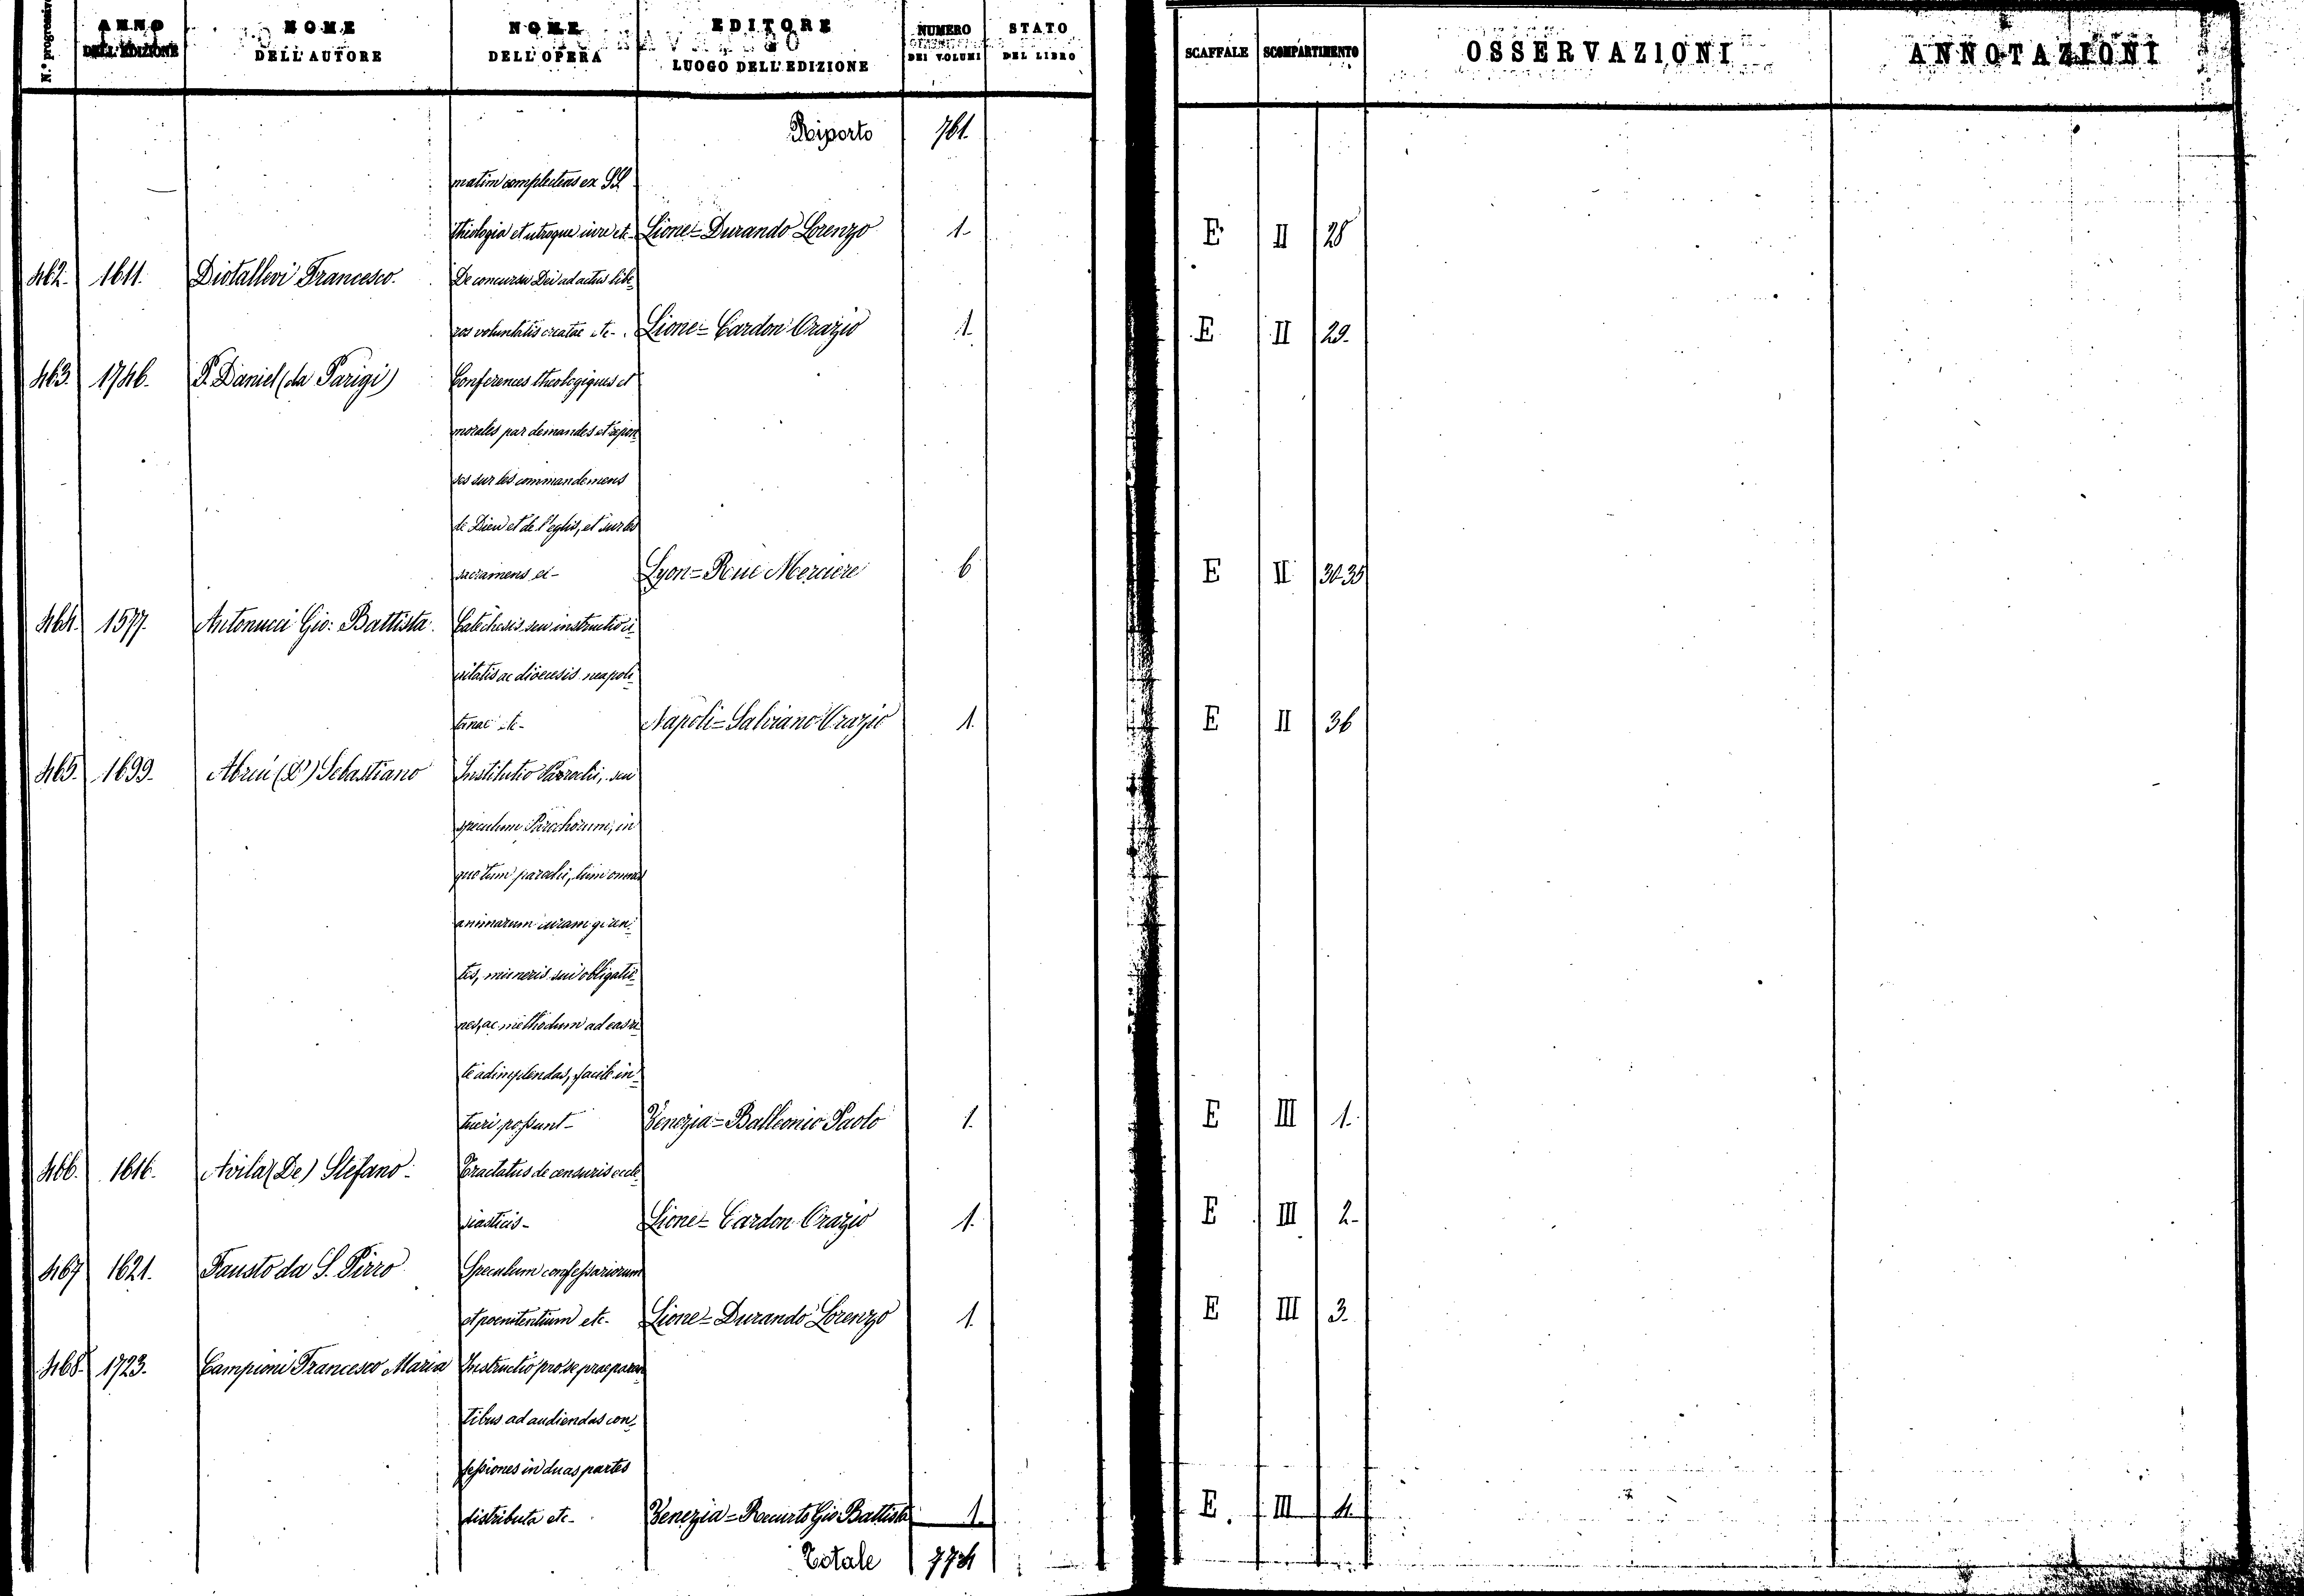 N.° progressivo | ANNO DELL'EDIZIONE | NOME DELL'AUTORE | NOME DELL'OPERA | EDITORE LUOGO DELL'EDIZIONE | NUMERO DEI VOLUMI | STATO DEL LIBRO | SCAFFALE | SCOMPARTIMENTO | OSSERVAZIONI | ANNOTAZIONI
Riporto 761.
matim complectens ex SS.
theologia et utroque iure etc- Lione=Durando Lorenzo 1. E II 28
462. 1611. Diotallevi Francesco. De concursu Dei ad actus libe-
ros voluntatis creatae etc- Lione=Cardon Orazio 1. E II 29.
463. 1746. P. Daniel (da Parigi) Conferences theologiques et
morales par demandes et repon-
ses sur les commandemens
de Dieu et de l'eglis, et sur les
sacramens et- Lyon=Rue Merciere 6 E II 30-35
464. 1577. Antonucci Gio: Battista. Catechesis seu instructio ci-
vitatis ac dioecesis neapoli-
tanae etc- Napoli=Salviano Orazio 1. E II 36
465. 1699. Abreu (D') Sebastiano Institutio Parrochi, seu
speculum Parochorum, in
quo tum parochi, tum omnes
animarum curam geren-
tes, muneris sui obligatio-
nes, ac methodum ad eas ri-
te adimplendas, facile in-
tueri possunt- Venezia=Balleonio Paolo 1. E III 1.
466. 1616. Avila (De) Stefano. Tractatus de censuris eccle-
siasticis- Lione=Cardon Orazio 1. E III 2-
467 1621. Fausto da S. Pirro Speculum confessariorum
et poenitentium etc- Lione=Durando Lorenzo 1. E III 3.
468. 1723. Campioni Francesco Maria Instructio pro se praeparan
tibus ad audiendas con-
fessiones in duas partes
distributa etc- Venezia=Recurto Gio Battista 1. E. III 4.
Totale 774